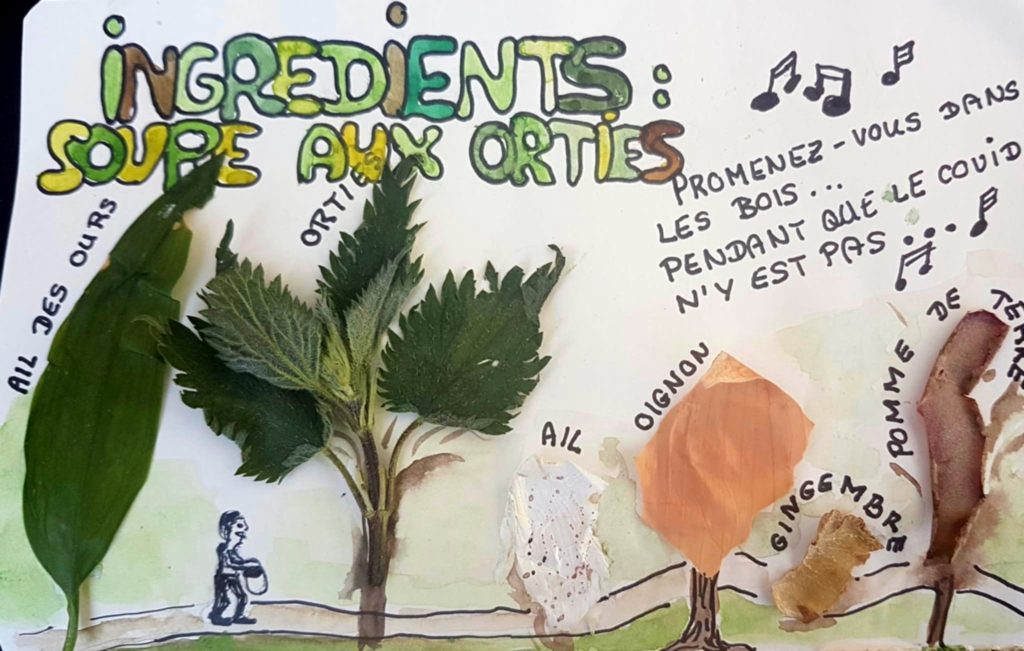 INGREDIENTS :
SOUPE AUX ORTIES
PROMENEZ-VOUS DANS
LES BOIS...
PENDANT QUE LE COVID
N'Y EST PAS...
AIL DES OURS
ORTIES
AIL
OIGNON
GINGEMBRE
POMME DE TERRE